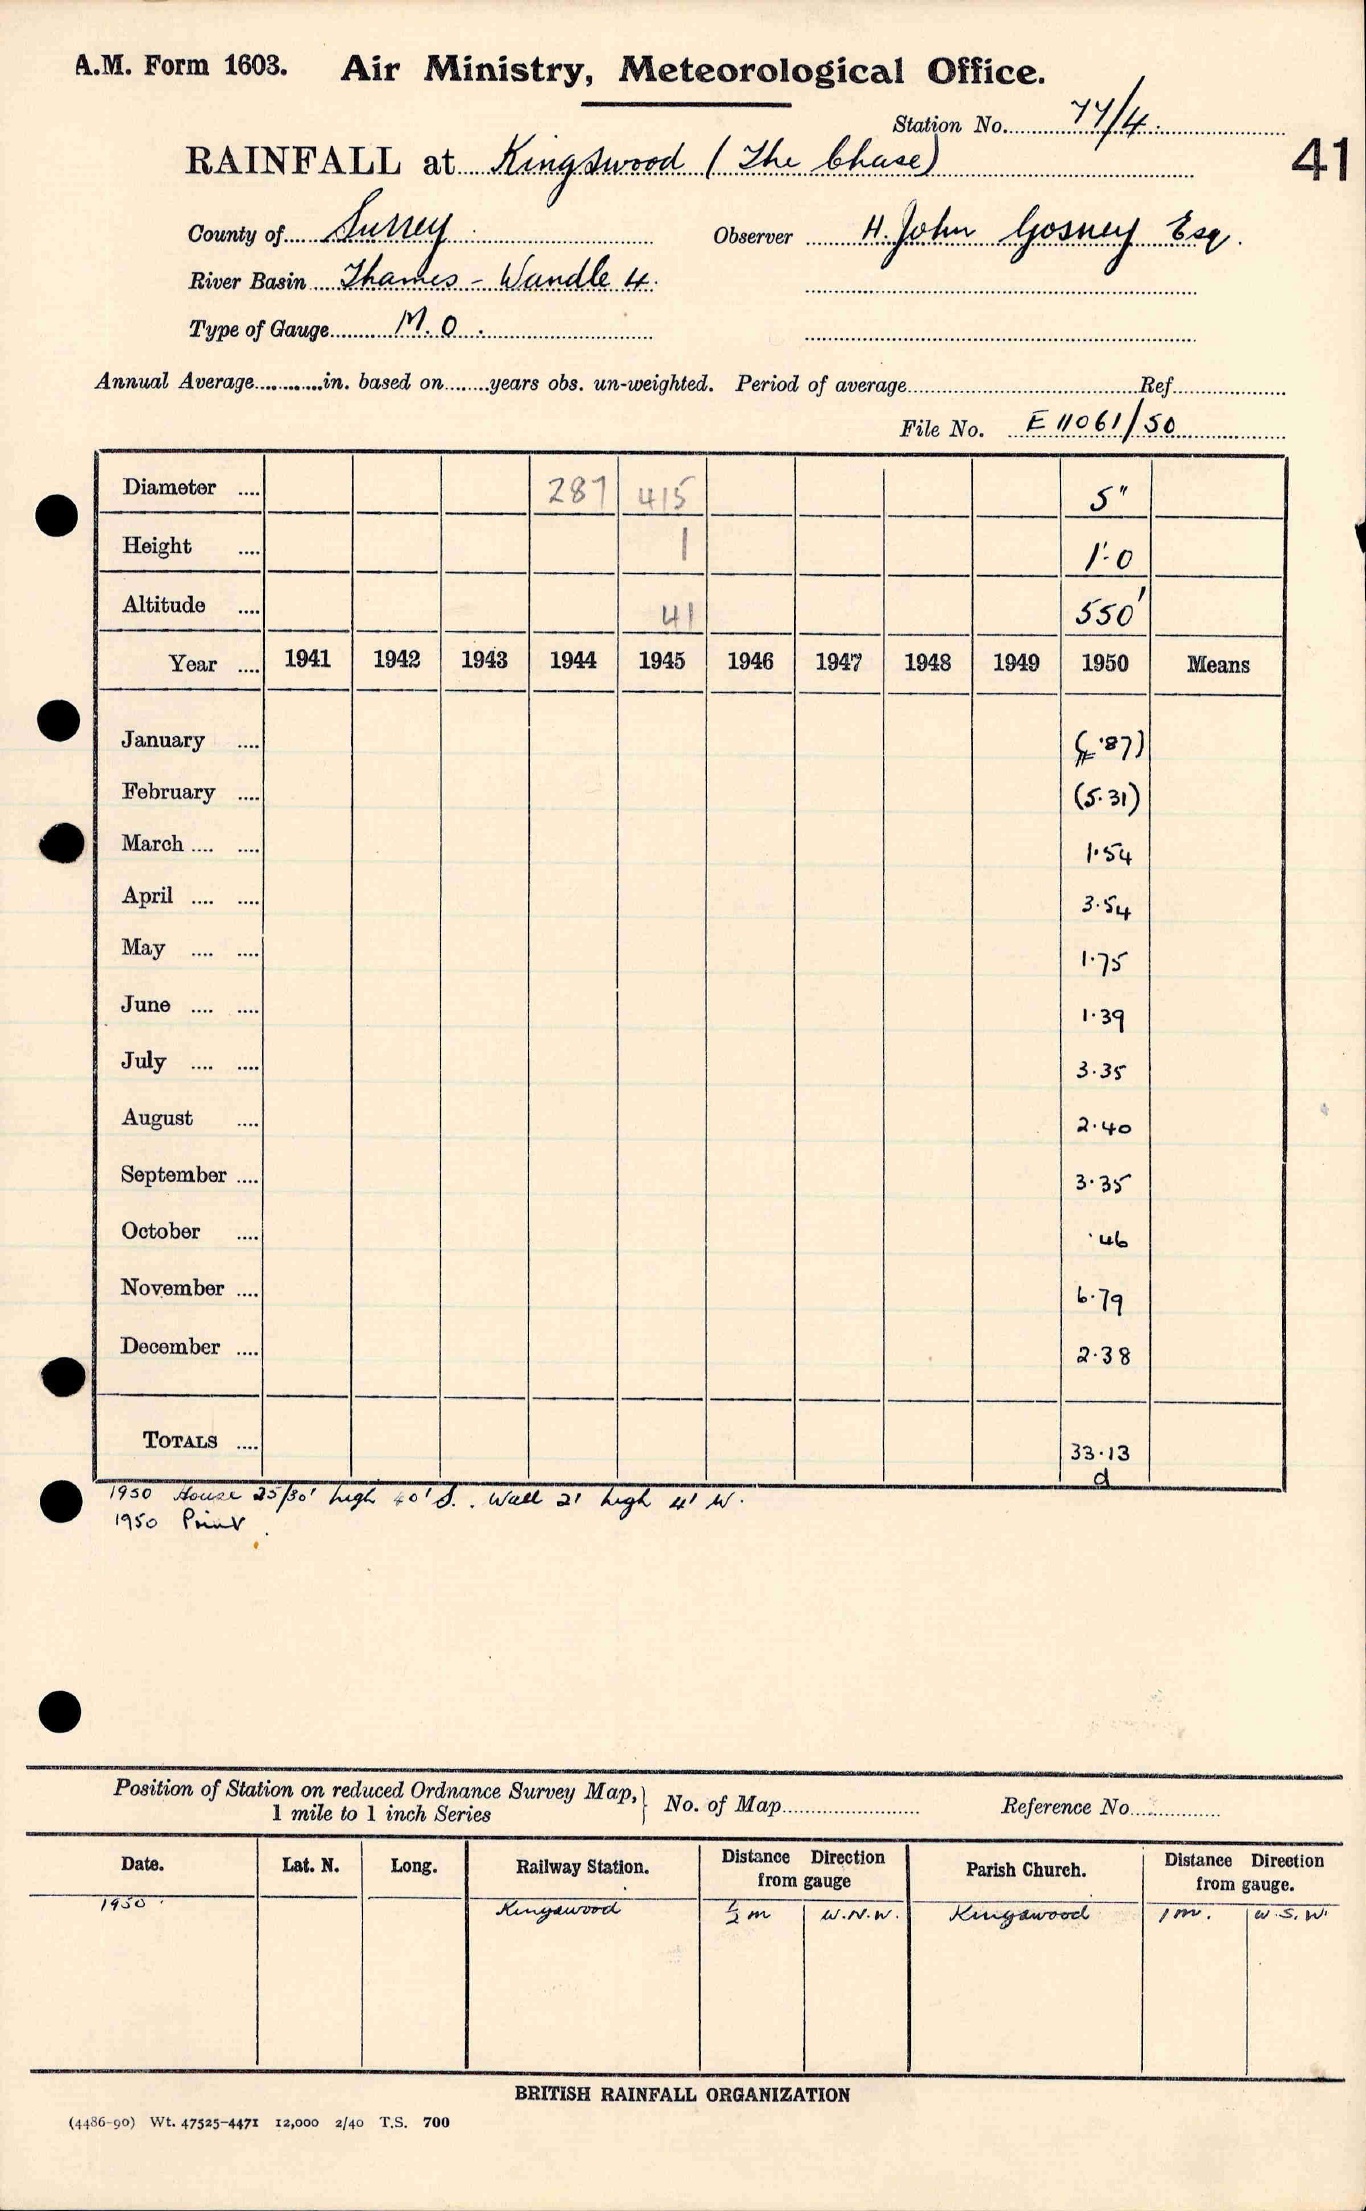 A.M. Form 1603. Air Ministry, Meteorological Office.
Station No. 77/4.
RAINFALL at Kingswood (The Chase)
41
County of Surrey Observer H. John Gosney Esq.
River Basin Thames - Wandle 4.
Type of Gauge M.O.
Annual Average in. based on years obs. un-weighted. Period of average Ref.
File No. E 11061/50
Diameter .... 287 415 5"
Height .... 1 1'-0
Altitude .... 41 550'
Year .... 1941 1942 1943 1944 1945 1946 1947 1948 1949 1950 Means
January .... (.87)
February .... (5.31)
March .... .... 1.54
April .... .... 3.54
May .... .... 1.75
June .... .... 1.39
July .... .... 3.35
August .... 2.40
September .... 3.35
October .... .46
November .... 6.79
December .... 2.38
TOTALS .... 33.13
d
1950 House 25/30' high 40' S. Wall 2' high 4' W.
1950 Print
Position of Station on reduced Ordnance Survey Map,
1 mile to 1 inch Series } No. of Map Reference No.
Date. Lat. N. Long. Railway Station. Distance Direction from gauge Parish Church. Distance Direction from gauge.
1950 Kingswood ½ m W.N.W. Kingswood 1 m. W.S.W.
BRITISH RAINFALL ORGANIZATION
(4486-90) Wt. 47525-4471 12,000 2/40 T.S. 700